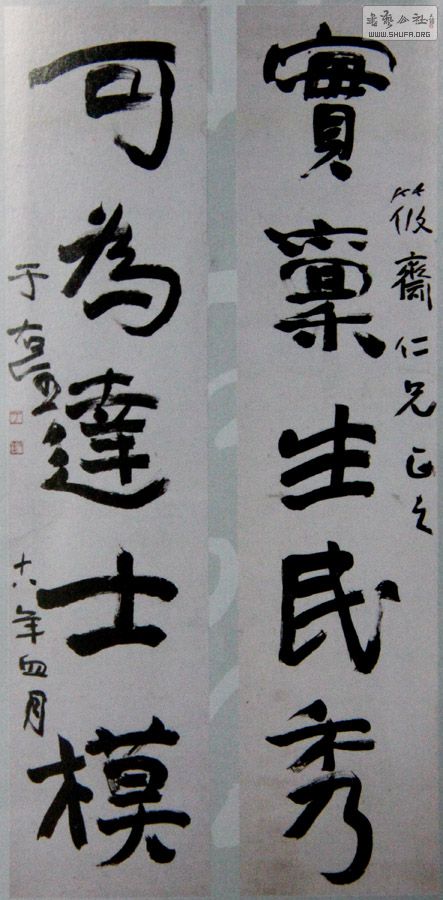 書藝公社
WWW.SHUFA.ORG
筱齋仁兄正之
實稟生民秀
可為達士模
于右任
十八年四月